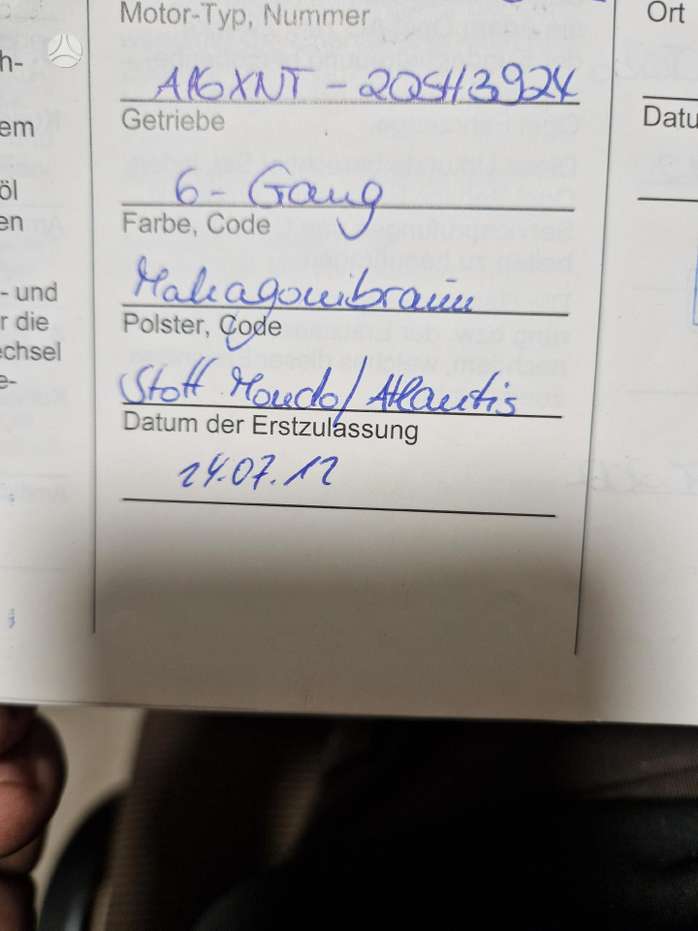 Motor-Typ, Nummer
Ort
h-
A16XNT - 20SH3924
Getriebe
Datu
em
6 - Gang
öl
Farbe, Code
en
Mahagonibraun
- und
Polster, Code
r die
echsel
Stoff Mondo/Atlantis
e-
Datum der Erstzulassung
24.07.12